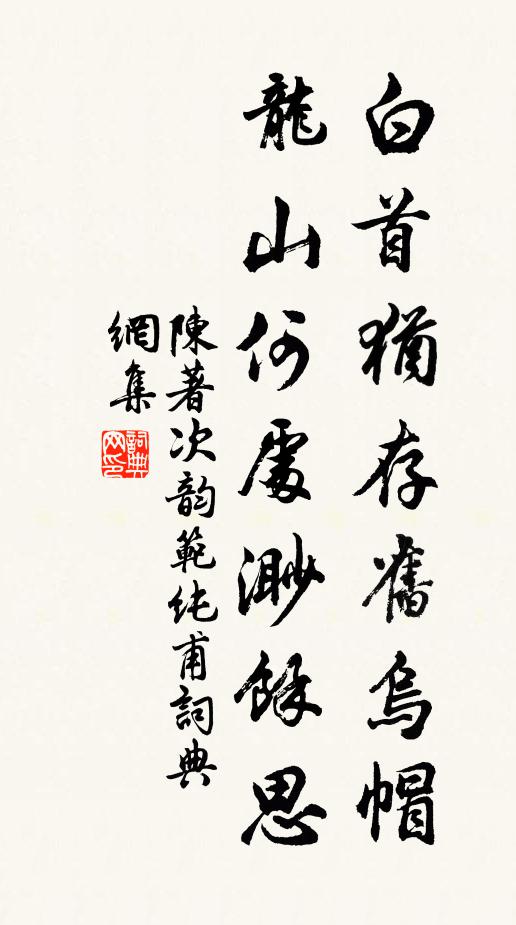 白首猶存舊烏帽
龍山何處渺餘思
陳著次韵範純甫詞典
網集
詞典
网印